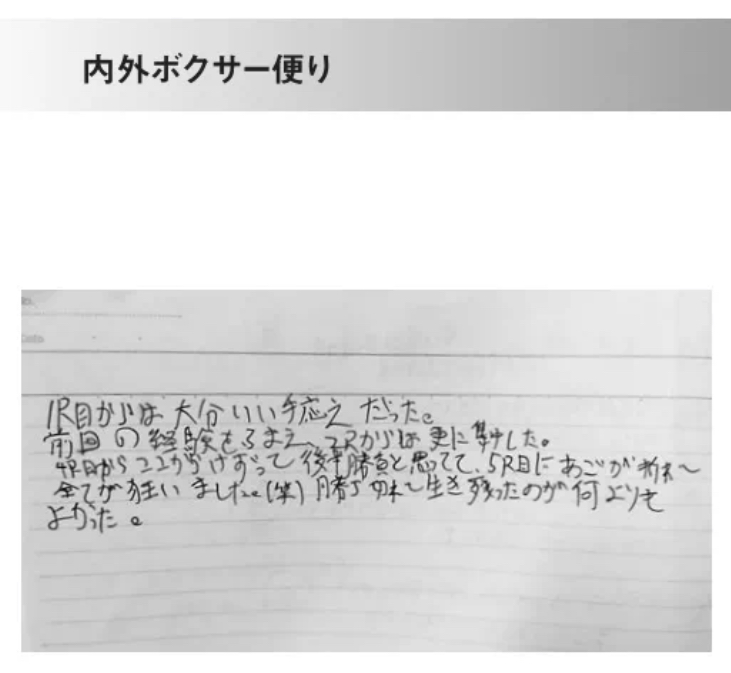 内外ボクサー便り
1R目からは大分いい手応えだった。
前回の経験をふまえ、2Rからは更に集中した。
4R目からココからけずって後半勝負と思ってて、5R目にあごが折れ〜
全てが狂いました。(笑) 勝ち切れ〜生き残ったのが何よりも
よかった。